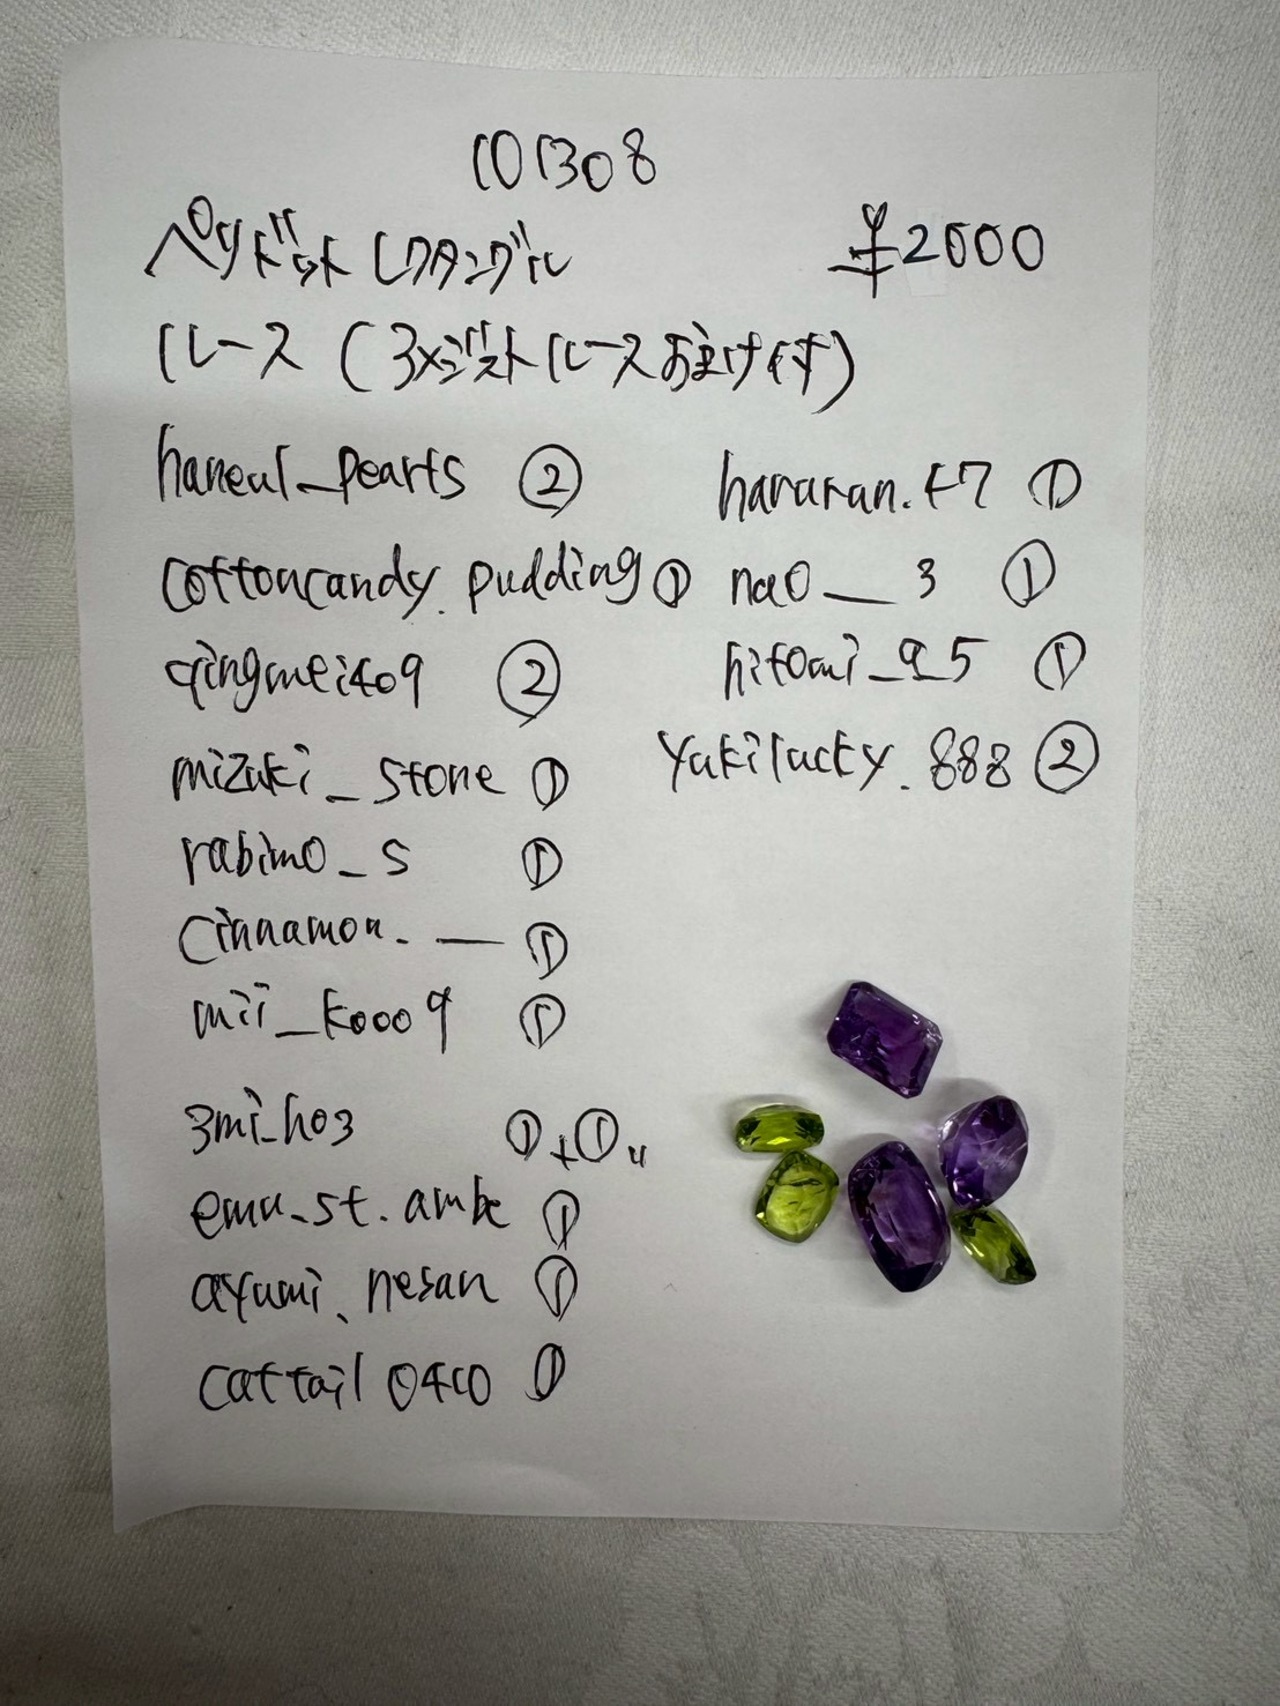 101308
ペリドットレクタングル ¥2000
ルース (3メジストルースおまけ付す)
haneul_pearls ②
cottoncandy.pudding ①
qingmei409 ②
mizuki_stone ①
rabimo_s ①
cinnamon.__ ①
mii_k0009 ①
3mi_ho3 ①+①〃
emu_st.ambe ①
ayumi.nesan ①
cattail0410 ①
hararan.t7 ①
nao__3 ①
hitomi_9_5 ①
yukilucky.888 ②